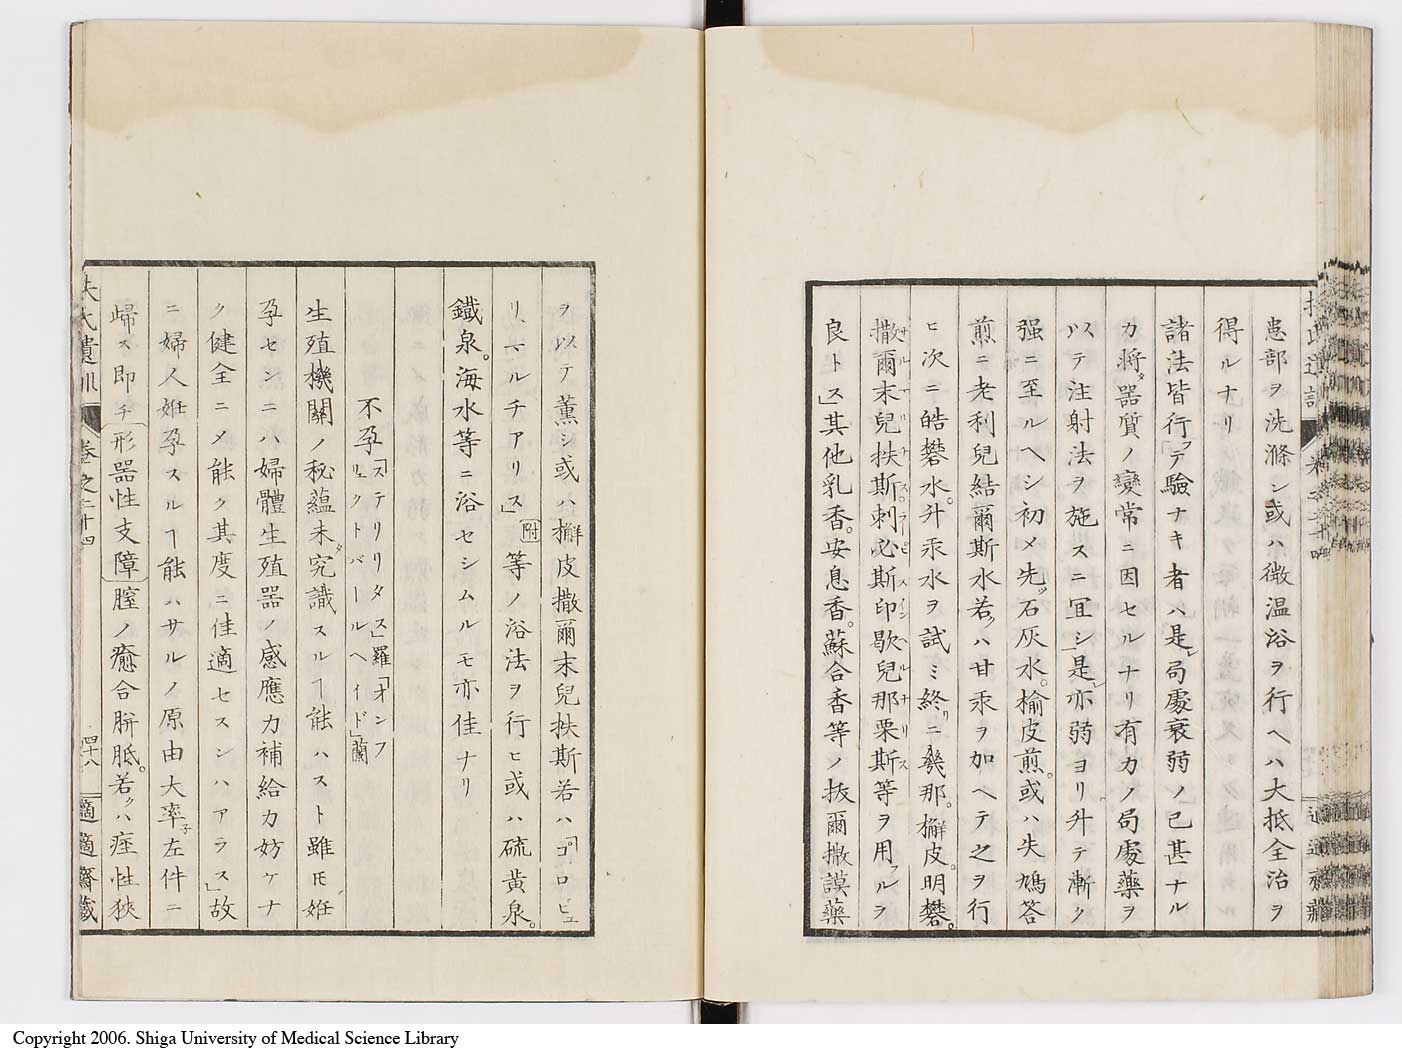 患部ヲ洗滌シ或ハ微温浴ヲ行ヘハ大抵全治ヲ
得ルナリ
諸法皆行フテ驗ナキ者ハ是レ局處衰弱ノ已甚ナル
カ將タ器質ノ變常ニ因セルナリ有力ノ局處藥ヲ
以テ注射法ヲ施スニ宜シ是レ亦弱ヨリ升テ漸ク
强ニ至ルヘシ初メ先ツ石灰水。榆皮煎。或ハ失鳩答
煎ニ老利兒結爾斯水若クハ甘汞ヲ加ヘテ之ヲ行
ヒ次ニ皓礬水。升汞水ヲ試ミ終リニ幾那。檞皮。明礬。
撒爾末兒扶斯。刺必斯印歇兒那栗斯等ヲ用フルヲ
サルマルハス。ラーピスインヘルナリス
良トス其他乳香。安息香。蘇合香等ノ抜爾撒謨藥
ヲ以テ薰シ或ハ檞皮撒爾末兒扶斯若ハ「コロビュ
リ、ールチアリス」附等ノ浴法ヲ行ヒ或ハ硫黄泉。
鐵泉。海水等ニ浴セシムルモ亦佳ナリ
不孕「ステリリタス」羅「オンフリュクトバールヘイド」蘭
生殖機關ノ秘蘊未タ究識スルヿ能ハスト雖モ姙
孕セシニハ婦體生殖器ノ感應力補給力妨ケナ
ク健全ニメ能ク其度ニ佳適セスンハアラス」故
ニ婦人姙孕スルヿ能ハサルノ原由大率子左件ニ
歸ス即チ形器性支障膣ノ癒合胼胝。若クハ痙性狹
扶氏遺訓 卷之二十四 四十八 適適齋藏